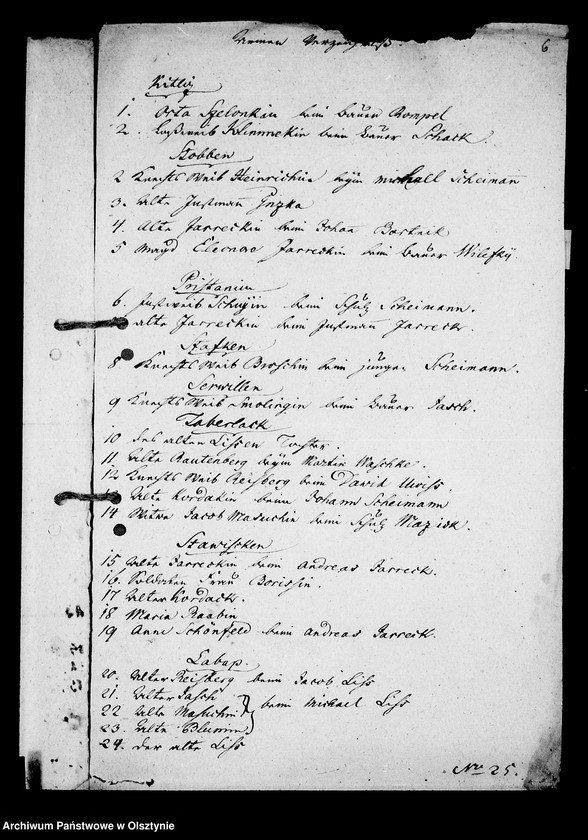 Armen Verzeichniß.
6
Kittlitz
1. Orta Szelonkin beim Bauer Rompel
2. Losweib Klimmekin beim Bauer Schack.
Stobben
2 Knechts Weib Heinrichin beym Michall Scheiman
3. Alte Justman Gnzka
4. Alte Jarreckin beim Johan Bartnik
5 Magd Eleonora Jarreckin beim Bauer Wilefky
Pristanien
6. Justweib Schugin beim Schulz Scheimann.
Alte Jarreckin beim Justman Jarreck.
Stafken
8 Knechts Weib Broschin beim jungen Scheimann.
Serwillen
9 Knechts Weib Smolingin beim Bauer Jasch.
Taberlack
10 des alten Lissen Tochter.
11 Alte Rautenberg beym Martin Waschke.
12 Knechts Weib Reisberg beim David Weiss
Alte Kordakin beim Johann Scheimann
14 Witwe Jacob Masuchin beim Schulz Mazick.
Stawisken
15 Alte Jarreckin beim Andreas Jarreck.
16. Soldaten Frau Borissin.
17 Alter Kordack.
18 Maria Raabin
19 Anna Schönfeld beim Andreas Jarreck.
Labap.
20. Alter Reisberg beim Jacob Liss
21. Alter Jasch
22 Alte Masuchin beim Michael Liss
23. Alte Blumin
24. Der alte Liss
No 25.
Archiwum Państwowe w Olsztynie